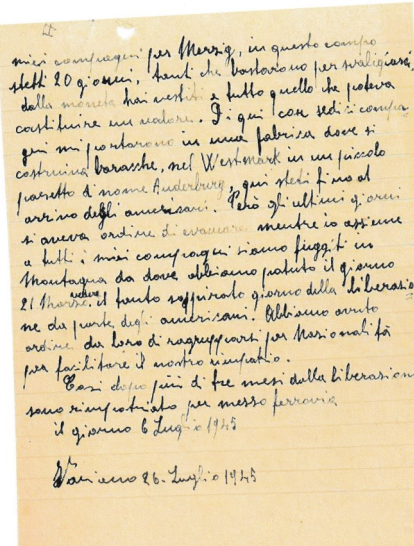 II
miei compagni per Merzig, in questo campo
stetti 20 giorni, tanti che bastarono per svaligiarci
dalla moneta hai vestiti e tutto quello che poteva
costituire un valore. Di qui con sedici compa-
gni mi portarono in una fabrica dove si
costruiva baracche, nel Westmark in un piccolo
paesetto d nome Anderburg, qui stetti fino al
arrivo degli americani. Però gli ultimi giorni
si aveva ordine di evacuare mentre io assieme
a tutti i miei compagni siamo fuggiti in
Montagna da dove abbiamo potuto il giorno
21 Marzo vedere il tanto sospirato giorno della liberazio
ne da parte degli americani. Abbiamo avuto
ordine da loro di ragrupparsi per Nazionalità
per facilitare il nostro rimpatrio.
Così dopo più di tre mesi dalla liberazion
sono rimpatriato per messo ferrovia
il giorno 6 Luglio 1945
26. Luglio 1945